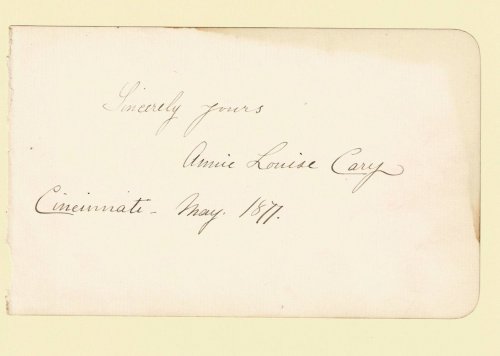 Sincerely yours
Annie Louise Cary
Cincinnati - May. 1877.